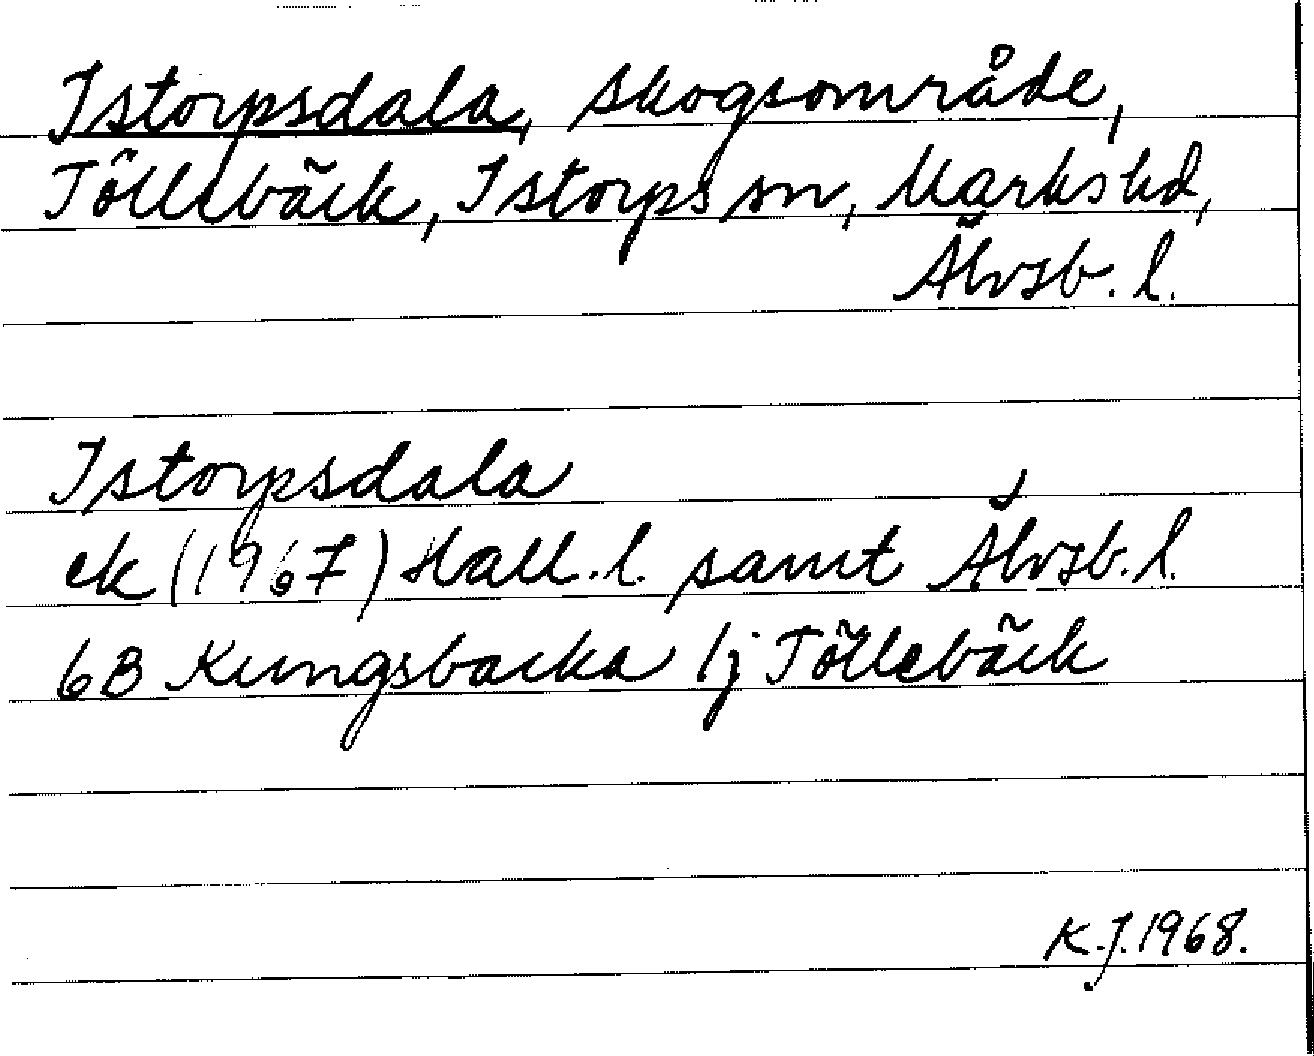 Istorpsdala, skogsområde,
Töllebäck, Istorps sn, Marks hd,
Älvsb. l.
Istorpsdala
ek (1967) Hall. l. samt Älvsb. l.
6B Kungsbacka 1j Töllebäck
K.J. 1968.